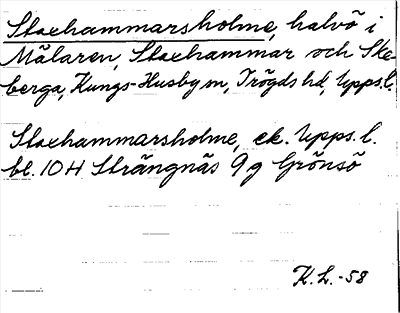 Stoxhammarsholme, halvö i
Mälaren, Stoxhammar och Ske-
berga, Kungs-Husby sn, Trögds hd, Upps. l.
Stoxhammarsholme, ek. Upps. l.
bl. 10 H Strängnäs 9 g Grönsö
K. L. -58